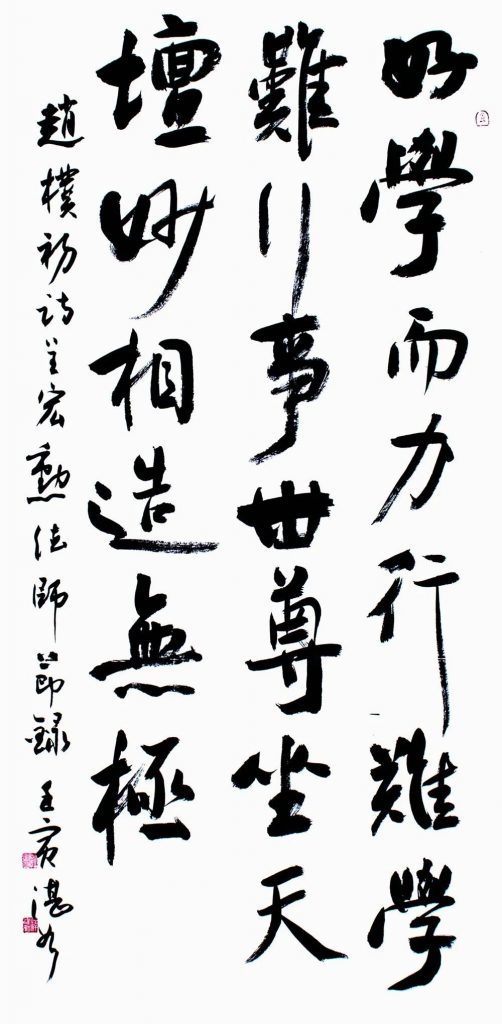 好學而力行難學
難行事世尊坐天
壇妙相造無極
趙樸初詩呈宏勳法師節錄 壬寅湛如